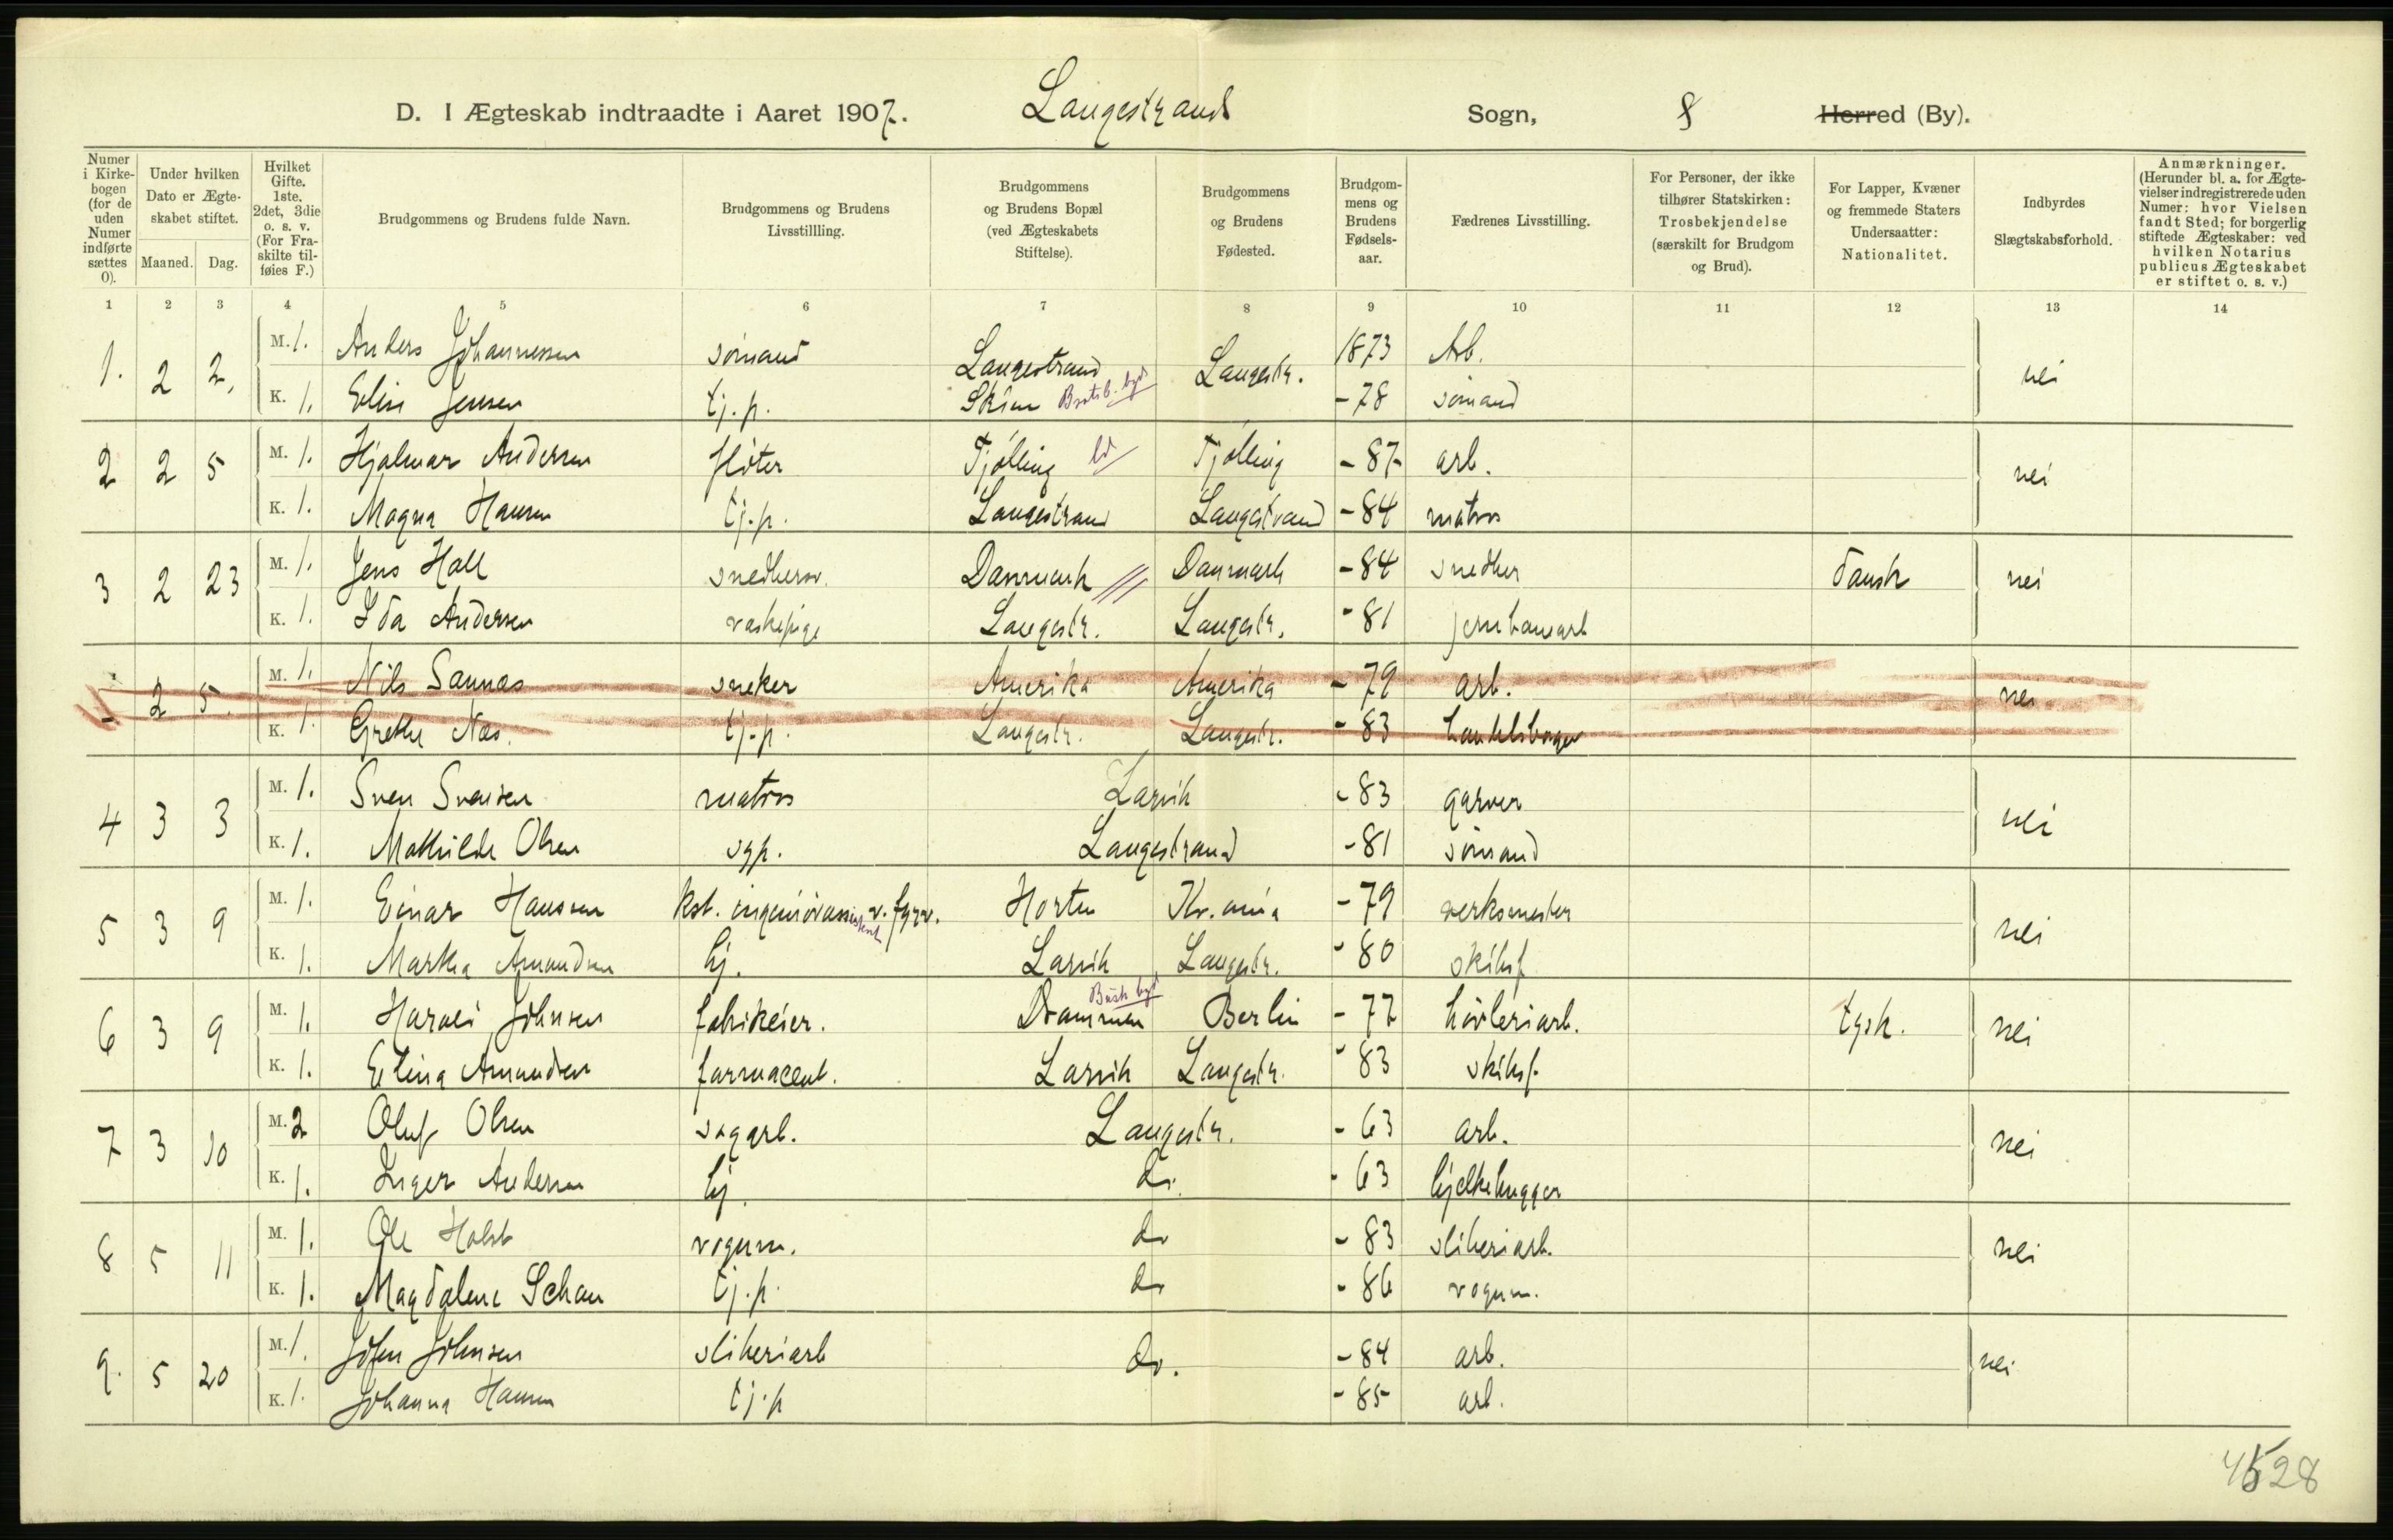 D. I Ægteskab indtraadte i Aaret 1907. Langestrand Sogn, 8 Herred (By).
Numer i Kirke-bogen (for de uden Numer indførte sættes 0).
Under hvilken Dato er Ægte-skabet stiftet.
Maaned. Dag.
Hvilket Gifte. 1ste. 2det, 3die o. s. v. (For Fra-skilte til-føies F.)
Brudgommens og Brudens fulde Navn.
Brudgommens og Brudens Livsstillling.
Brudgommens og Brudens Bopæl (ved Ægteskabets Stiftelse).
Brudgommens og Brudens Fødested.
Brudgom-mens og Brudens Fødsels-aar.
Fædrenes Livsstilling.
For Personer, der ikke tilhører Statskirken: Trosbekjendelse (særskilt for Brudgom og Brud).
For Lapper, Kvæner og fremmede Staters Undersaatter: Nationalitet.
Indbyrdes Slægtskabsforhold.
Anmærkninger. (Herunder bl. a. for Ægte-vielser indregistrerede uden Numer: hvor Vielsen fandt Sted; for borgerlig stiftede Ægteskaber: ved hvilken Notarius publicus Ægteskabet er stiftet o. s. v.)
1 2 3 4 5 6 7 8 9 10 11 12 13 14
1. 2 2. M. 1. Anders Johannessen sømand Langestrand Langestr. 1873 Arb. nei
K. 1. Elise Jensen tj.p. Skien Bratsb. byd -78 sømand
2 2 5 M. 1. Hjalmar Andersen fløter Tjølling ld Tjølling -87 arb. nei
K. 1. Magna Hansen tj.p. Langestrand Langestrand -84 matros
3 2 23 M. 1. Jens Hall snedkersv. Danmark Danmark -84 snedker dansk nei
K. 1. Ida Andersen vaskepige Langestr. Langestr. -81 jernbanearb
- 2 5. M. 1. Nils Sannæs sneker Amerika Amerika -79 arb. nei
K. 1. Grethe Næs. tj.p. Langestr. Langestr. -83 handelsborger
4 3 3 M. 1. Sven Svensen matros Larvik -83 garver nei
K. 1. Mathilde Olsen syp. Langestrand -81 sømand
5 3 9 M. 1. Einar Hansen kst. ingeniørassistent v. fyrv. Horten Kr.ania -79 verksmester nei
K. 1. Martha Amundsen hj. Larvik Langestr. -80 skibsf
6 3 9 M. 1. Harald Johnsen fabrikeier. Drammen Busk byd Berlin -77 høvleriarb. tysk. nei
K. 1. Elina Amundsen farmaceut. Larvik Langestr. -83 skibsf.
7 3 10 M. 2 Oluf Olsen sagarb. Langestr. -63 arb. nei
K. 1. Inger Andersen hj. do. -63 bjelkehugger
8 5 11 M. 1. Ole Holst vognm. do -83 sliberiarb. nei
K. 1. Magdalene Schau tj.p. do -86 vognm.
9. 5 20 M. 1. John Johnsen sliberiarb do. -84 arb. nei
K. 1. Johanna Hansen tj.p -85 arb.
4528